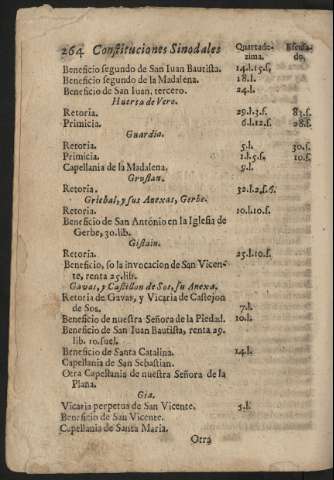 264 Constituciones Sinodales Quartade- Escusa-
zima. do.
Beneficio segundo de San Iuan Bautista. 14.l.15.s.
Beneficio segundo de la Madalena. 18.l.
Beneficio de San Iuan, tercero. 24.l.
Huerta de Vero.
Retoria. 29.l.3.s. 83.s.
Primicia. 6.l.12.s. 28.s.
Guardia.
Retoria. 5.l. 30.s.
Primicia. 1.l.5.s. 10.s.
Capellania de la Madalena. 9.l.
Grustan.
Retoria. 32.l.2.s.
Griebal, y sus Anexas, Gerbe.
Retoria. 10.l.10.s.
Beneficio de San Antonio en la Iglesia de
Gerbe, 30.lib.
Gistain.
Retoria. 25.l.10.s.
Beneficio, so la invocacion de San Vicen-
te, renta 25.lib.
Gavas, y Castillon de Sos, su Anexa.
Retoria de Gavas, y Vicaria de Castejon
de Sos. 7.l.
Beneficio de nuestra Señora de la Piedad. 10.l.
Beneficio de San Iuan Bautista, renta 29.
lib. 10.suel.
Beneficio de Santa Catalina. 14.l.
Capellania de San Sebastian.
Otra Capellania de nuestra Señora de la
Plana.
Gia.
Vicaria perpetua de San Vicente. 5.l.
Beneficio de San Vicente.
Capellania de Santa Maria.
Otra